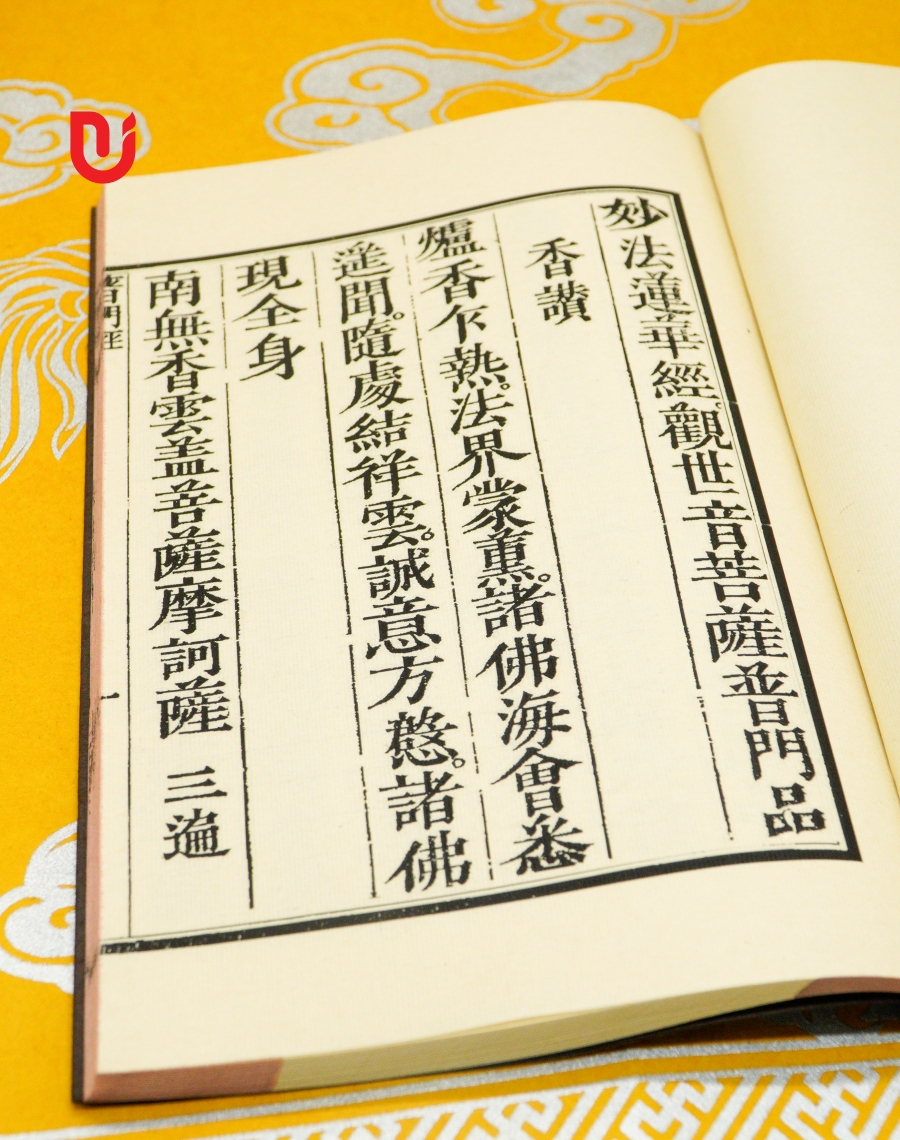 妙法蓮華經。觀世音菩薩普門品
香讚
爐香乍熱。法界蒙薫。諸佛海會悉
遥聞。隨處結祥雲。誠意方慇。諸佛
現全身
南無香雲盖菩薩摩訶薩 三遍
普門經
一